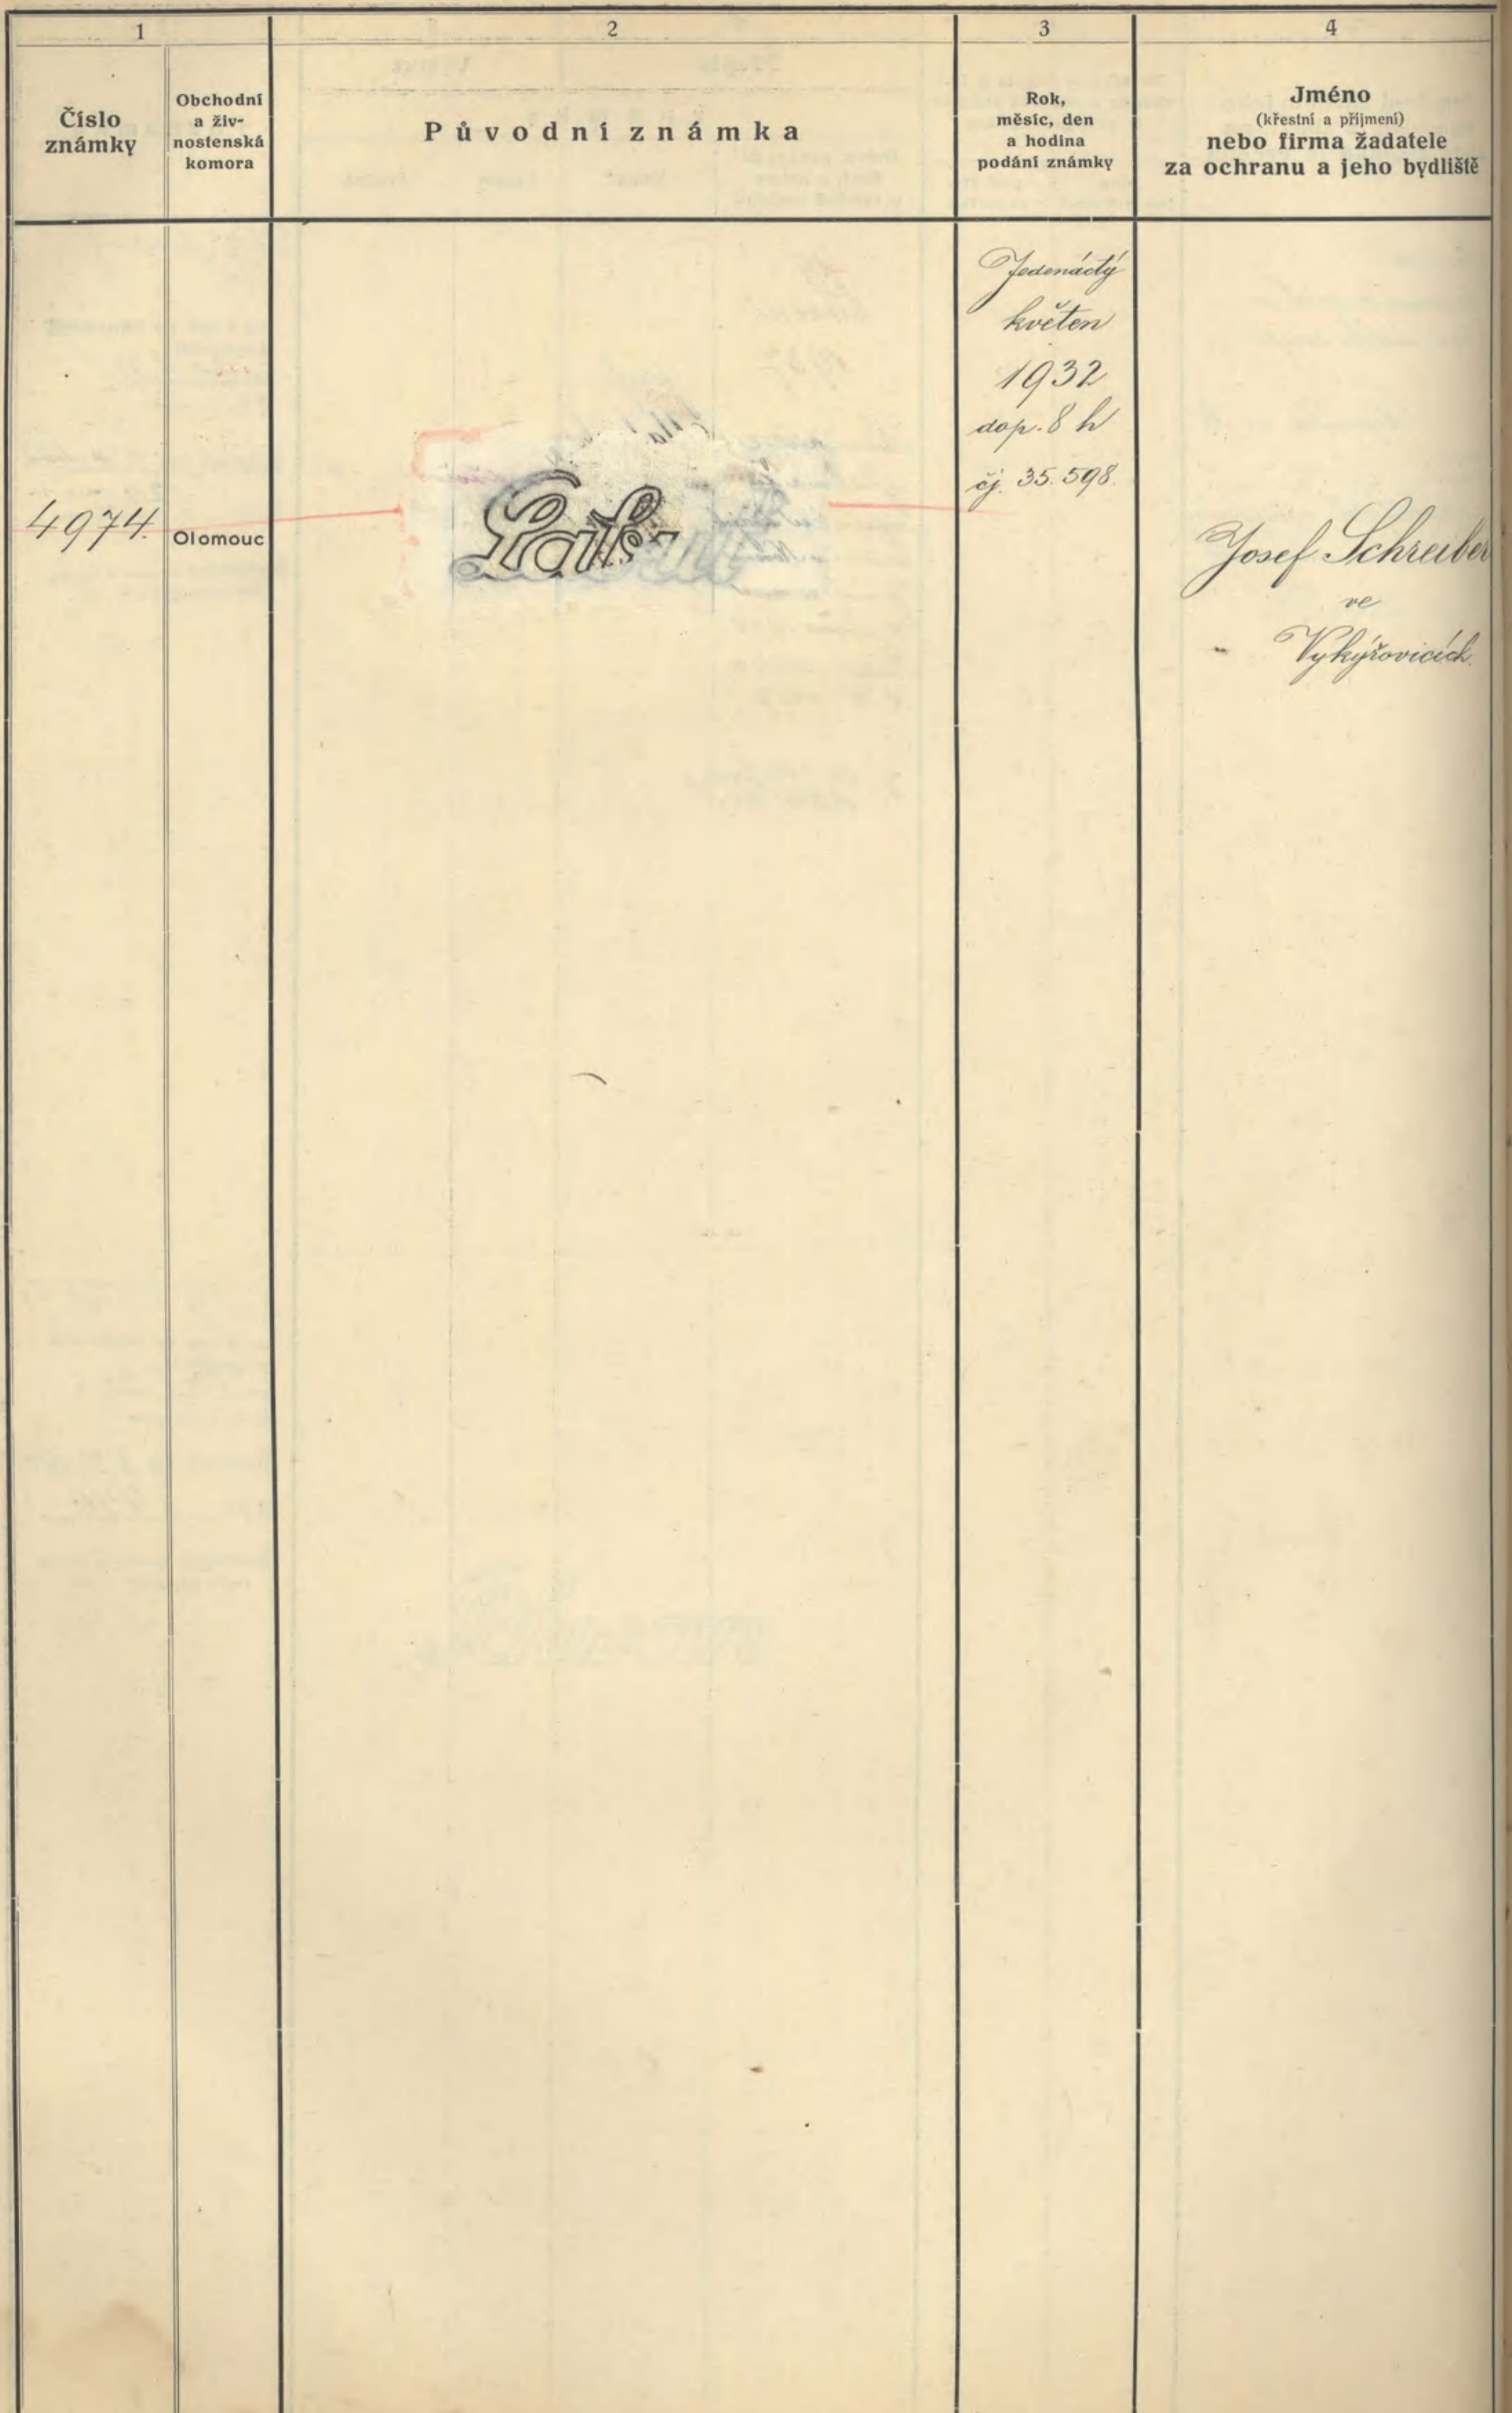 1
2
3
4
Číslo
známky
Obchodní
a živ-
nostenská
komora
Původní známka
Rok,
měsíc, den
a hodina
podání známky
Jméno
(křestní a příjmení)
nebo firma žadatele
za ochranu a jeho bydliště
4974.
Olomouc
Jedenáctý
květen
1932
dop. 8 h
čj. 35.598.
Josef Schreiber
ve
Vykýřovicích.